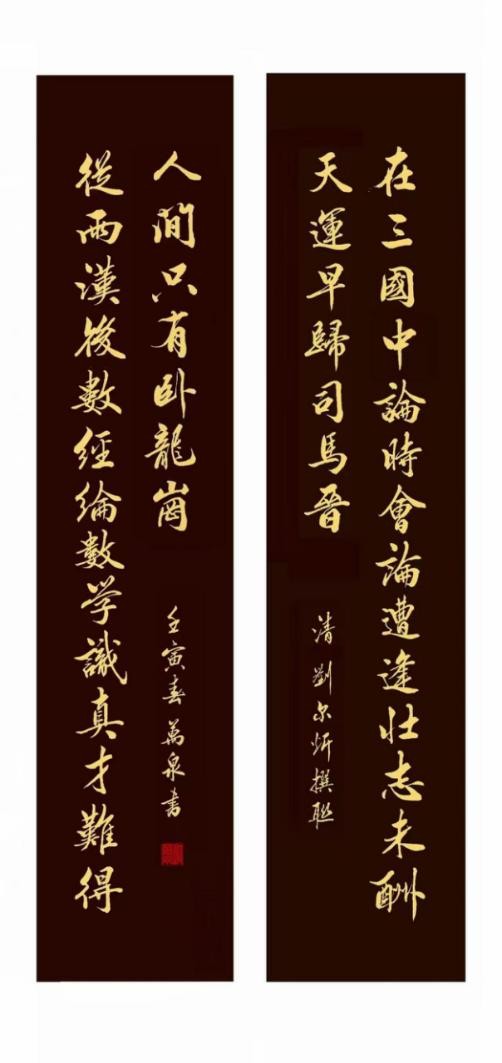 在三國中論時會論遭逢壯志未酬
天運早歸司馬晉
清劉尔炘撰聯
從兩漢後數經綸數学識真才難得
人間只有卧龍崗
壬寅春萬泉書